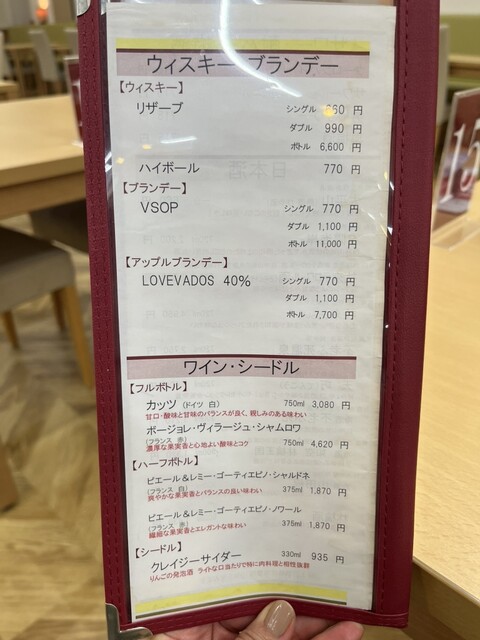 ウィスキー・ブランデー
【ウィスキー】
リザーブ シングル 660 円
ダブル 990 円
ボトル 6,600 円
ハイボール 770 円
【ブランデー】
VSOP シングル 770 円
ダブル 1,100 円
ボトル 11,000 円
【アップルブランデー】
LOVEVADOS 40% シングル 770 円
ダブル 1,100 円
ボトル 7,700 円
ワイン・シードル
【フルボトル】
カッツ (ドイツ 白) 750ml 3,080 円
甘口・酸味と甘味のバランスが良く、親しみのある味わい
ボージョレ・ヴィラージュ・シャムロワ
(フランス 赤) 750ml 4,620 円
濃厚な果実香と心地よい酸味とコク
【ハーフボトル】
ピエール＆レミー・ゴーティエピノ・シャルドネ
(フランス 白) 375ml 1,870 円
爽やかな果実香とバランスの良い味わい
ピエール＆レミー・ゴーティエピノ・ノワール
(フランス 赤) 375ml 1,870 円
繊細な果実香とエレガントな味わい
【シードル】
クレイジーサイダー 330ml 935 円
りんごの発泡酒 ライトな口当たりで特に肉料理と相性抜群
日本酒
15